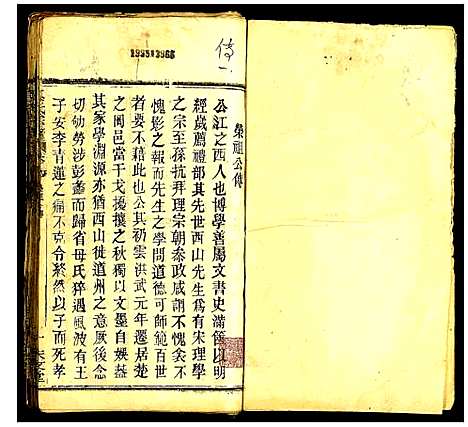 傳一
19951396
榮祖公傳
公江之西人也博學善屬文書史滿筒以明
經歲薦禮部其先世西山先生為有宋理學
之宗至孫抗拜理宗朝泰政咸謂不愧衾不
愧影之報而先生之學問道德可師範百世
者要不藉此也公其初雲洪武元年遷居楚
之岡邑當干戈擾攘之秋獨以文墨自娛蓋
其家學淵源亦猶西山徙道州之意厥後念
切劬勞涉彭蠡而歸省母氏猝遇颶波有王
子安李青蓮之痛不克令終然以子而死孝